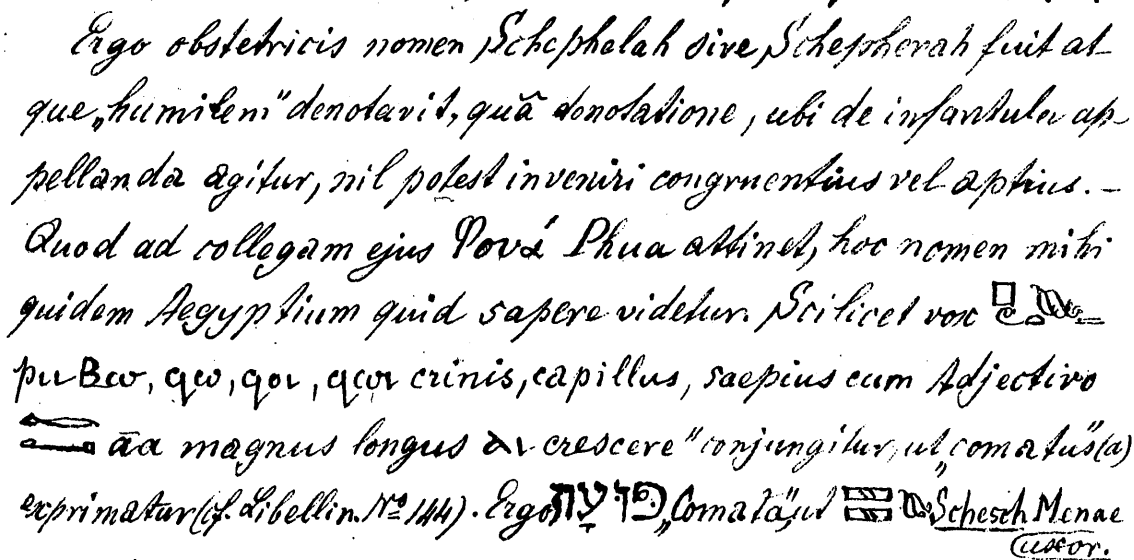 Ergo obstetricis nomen Schephelah sive Schepherah fuit at-
que „humilem" denotavit, quâ denotatione, ubi de infantula ap-
pellanda agitur, nil potest inveniri congruentius vel aptius. –
Quod ad collegam ejus Φουά Phua attinet, hoc nomen mihi
quidem Aegyptium quid sapere videtur. Scilicet vox
pu Βω, ϥω, ϥοι, ϥωι crinis, capillus, saepius cum Adjectivo
āa magnus longus ⲁⲓ crescere" conjungitur, ut „comatus"(a)
exprimatur (cf. Libellin. No 144). Ergo פועה „Comata", ut Schesch Menae
uxor.